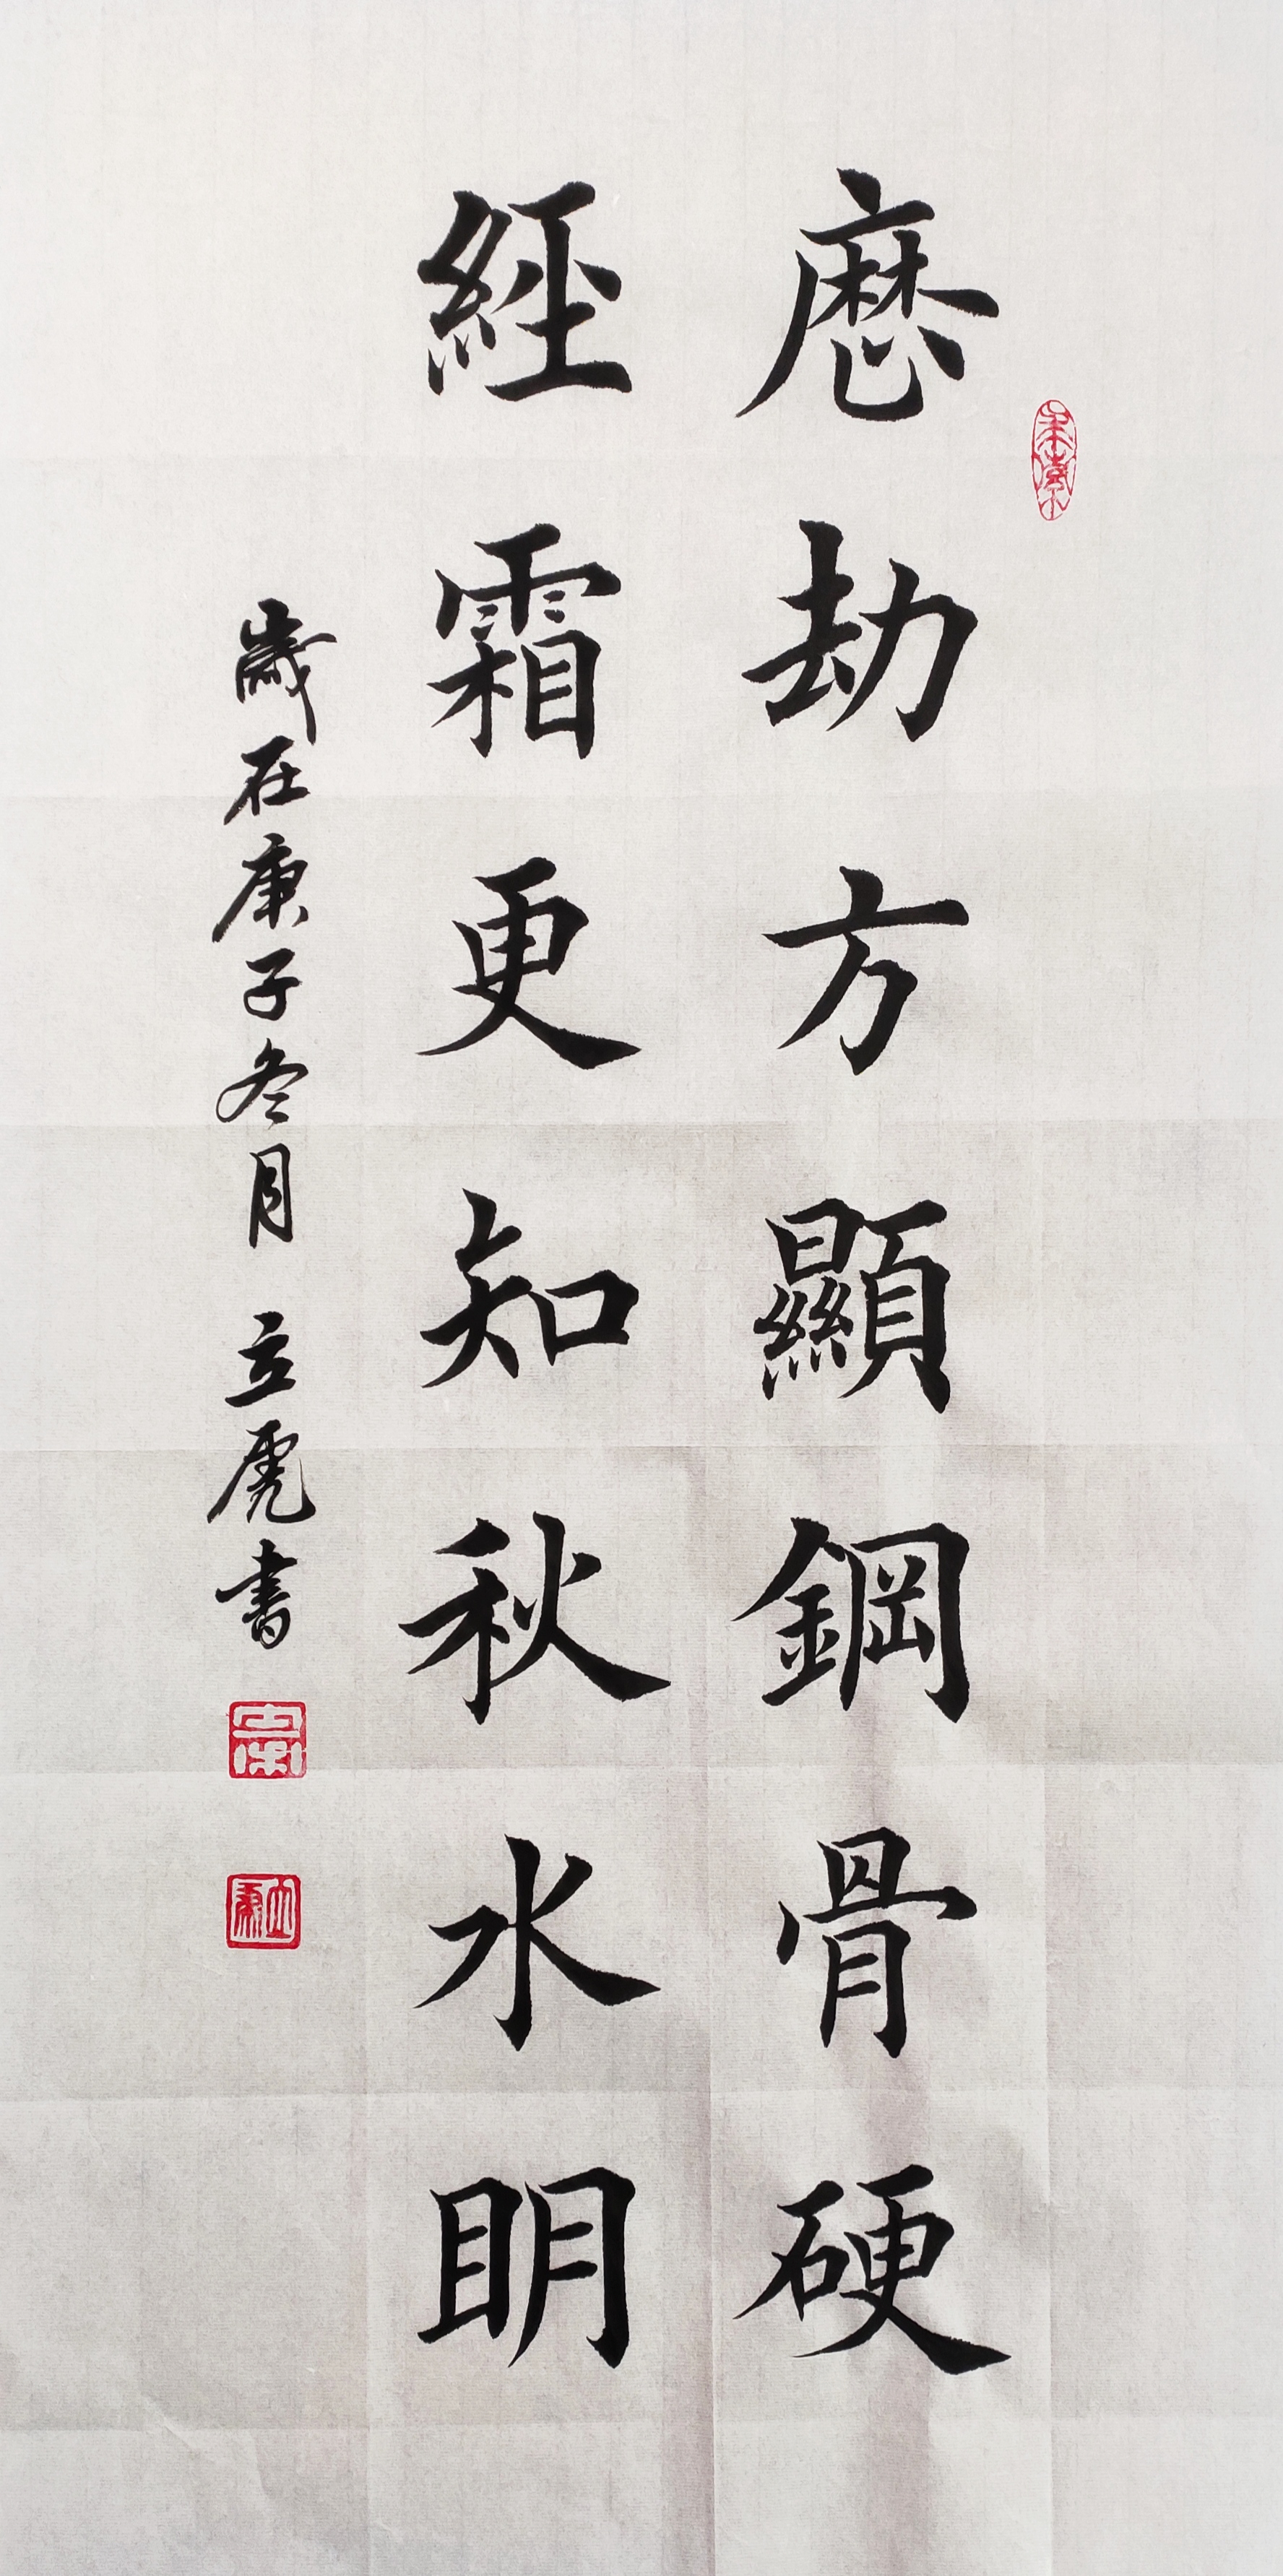 歷劫方顯鋼骨硬
經霜更知秋水眀
歲在庚子冬月 立虎書